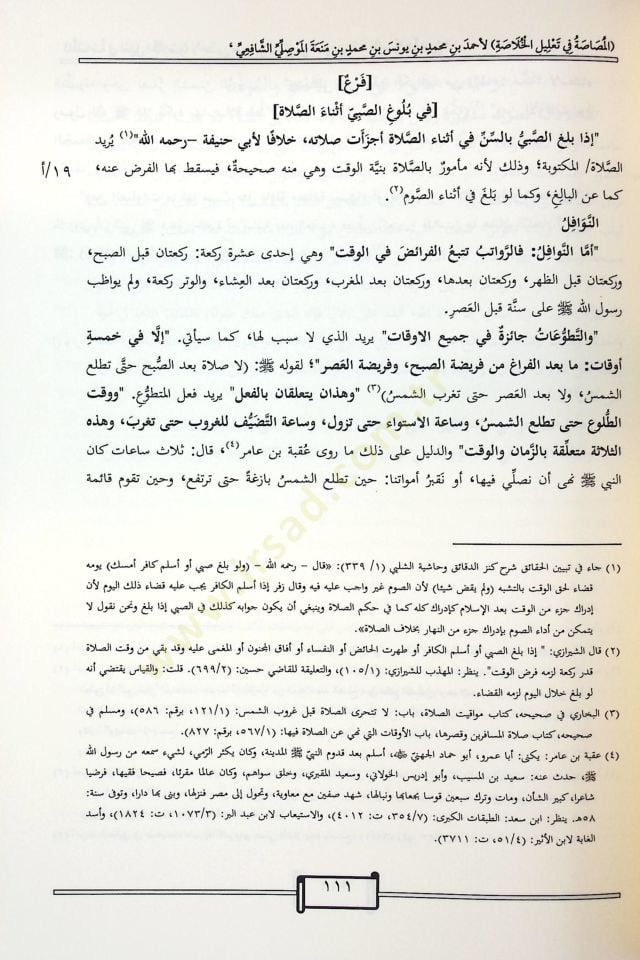 (المُصَاصَةُ فِي تَعْلِيلِ الخُلَاصَةِ) لأحمدَ بنِ محمدِ بنِ يونسَ بنِ محمدِ بنِ مَنعَةَ المَوْصِلِيِّ الشَّافِعِيِّ،
[فَرْعٌ]
[في بُلُوغِ الصَّبِيِّ أثناءَ الصَّلاة]
"إذا بلغ الصَّبيُّ بالسِّنِّ في أثناء الصَّلاة أجزَأت صلاته، خلافًا لأبي حنيفة –رحمه الله"(١) يُريد
الصَّلاة/ المكتوبة؛ وذلك لأنه مأمورٌ بالصَّلاة بنيَّة الوقت وهي منه صحيحةٌ، فيسقط بها الفرض عنه،
١٩/أ
كما عن البالِغِ، وكما لو بَلغَ في أثناء الصَّوم(٢).
النَّوَافِلُ
"أمَّا النَّوافِلُ: فالرَّواتبُ تتبعُ الفرائضَ في الوقت" وهي إحدى عشرة ركعة: ركعتان قبل الصبح،
وركعتان قبل الظهر، وركعتان بعدها، وركعتان بعد المغرب، وركعتان بعد العِشاء، والوتر ركعة، ولم يواظب
رسول الله ﷺ على سنَّة قبل العَصرِ.
"والتَّطوُّعَاتُ جائزةٌ في جميع الاوقات" يريد الذي لا سبب لها، كما سيأتي. "إلَّا في خمسةِ
أوقات: ما بعد الفراغ من فريضة الصبح، وفريضة العَصر"؛ لقوله ﷺ: (لا صلاة بعد الصُّبح حتَّى تطلع
الشمسُ، ولا بعد العصر حتى تغرب الشمسُ)(٣) "وهذان يتعلقان بالفعل" يريد فعل المتطوِّع. "ووقت
الطُّلوع حتى تطلع الشمسُ، وساعة الاستواء حتى تزول، وساعة التَّضيُّف للغروب حتى تغربَ، وهذه
الثلاثة متعلِّقة بالزَّمان والوقت" والدليل على ذلك ما روى عُقبة بن عامر(٤)، قال: ثلاث ساعات كان
النبي ﷺ نهى أن نصلِّي فيها، أو نَقبرُ أمواتنا: حين تطلع الشمسُ بازغةً حتى ترتفع، وحين تقوم قائمة
(١) جاء في تبيين الحقائق شرح كنز الدقائق وحاشية الشلبي (١/ ٣٣٩): «قال – رحمه الله – (ولو بلغ صبي أو أسلم كافر أمسك) يومه
قضاء لحق الوقت بالتشبه (ولم يقض شيئا) لأن الصوم غير واجب عليه فيه وقال زفر إذا أسلم الكافر يجب عليه قضاء ذلك اليوم لأن
إدراك جزء من الوقت بعد الإسلام كإدراك كله كما في حكم الصلاة وينبغي أن يكون جوابه كذلك في الصبي إذا بلغ ونحن نقول لا
يتمكن من أداء الصوم بإدراك جزء من النهار بخلاف الصلاة».
(٢) قال الشيرازي: " إذا بلغ الصبي أو أسلم الكافر أو طهرت الحائض أو النفساء أو أفاق المجنون أو المغمى عليه وقد بقي من وقت الصلاة
قدر ركعة لزمه فرض الوقت". ينظر: المهذب للشيرازي (١/١٠٥)، والتعليقة للقاضي حسين: (٢/٦٩٩). قلت: والقياس يقتضي أنه
لو بلغ خلال اليوم لزمه القضاء.
(٣) البخاري في صحيحه، كتاب مواقيت الصلاة، باب: لا تتحرى الصلاة قبل غروب الشمس: (١/١٢١، برقم: ٥٨٦)، ومسلم في
صحيحه، كتاب صلاة المسافرين وقصرها، باب الأوقات التي نهي عن الصلاة فيها: (١/٥٦٧، برقم: ٨٢٧).
(٤) عقبة بن عامر: يكنى: أبا عمرو، أبو حماد الجهني ﷺ، أسلم بعد قدوم النبي ﷺ المدينة، وكان يكثر الرَّمي، لشيء سمعه من رسول الله
ﷺ، حدث عنه: سعيد بن المسيب، وأبو إدريس الخولاني، وسعيد المقبري، وخلق سواهم، وكان عالما مقرئا، فصيحا فقيها، فرضيا
شاعرا، كبير الشأن، ومات وترك سبعين قوسا بجعابها ونبالها، شهد صفين مع معاوية، وتحول إلى مصر فنزلها، وبنى بها دارا، وتوفى سنة:
٥٨هـ. ينظر: ابن سعد: الطبقات الكبرى: (٧/٣٥٤، ت: ٤٠١٢)، والاستيعاب لابن عبد البر: (٣/١٠٧٣، ت: ١٨٢٤)، وأسد
الغابة لابن الأثير: (٤/٥١، ت: ٣٧١١).
١١١
www.irsad.com.tr